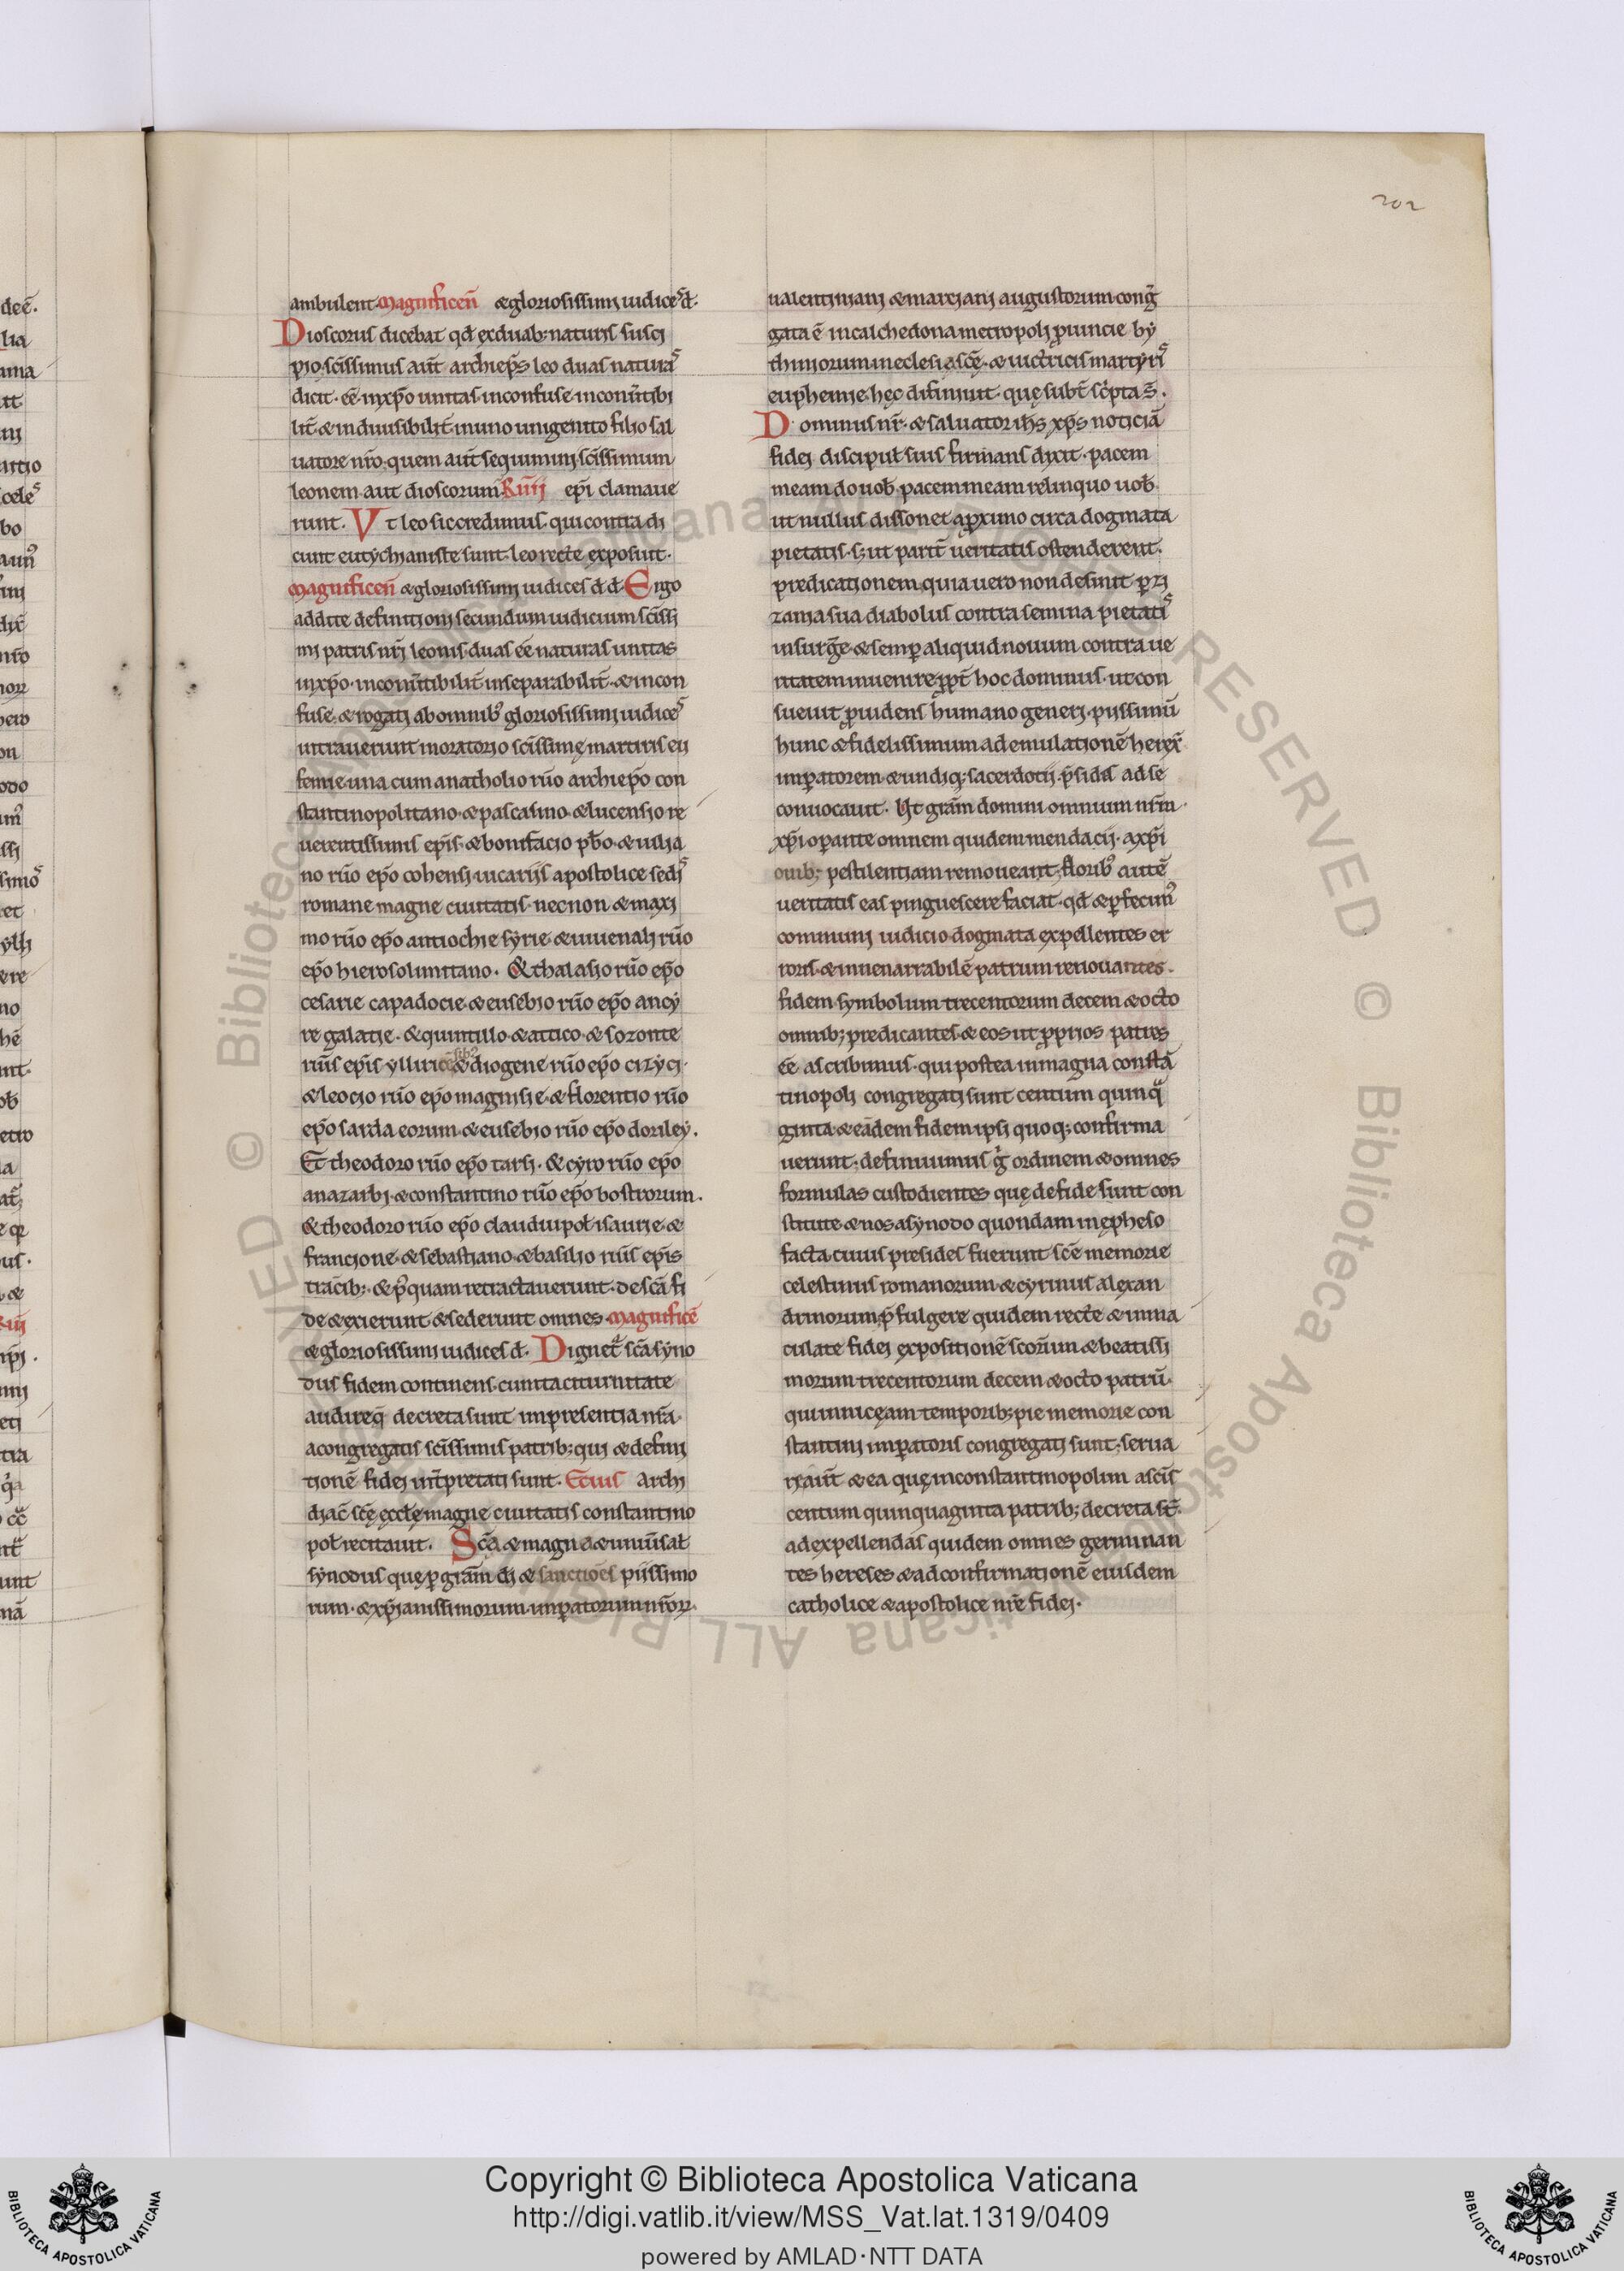 202
ambulent magnificen̄ & gloriosissimi iudices đ.
Dioscorus dicebat qđ ex duab; naturis susci
pio, sc̄issimus aut̄ archiep̄s leo duas naturas
dicit. ee̅ in xp̄o unitas inconfuse inconu̅tibi
lit̄ & indiuisibilit̄ in uno unigenito filio sal
uatore nr̄o, quem aut̄ sequimini sc̄issimum
leonem aut dioscorum Rūij ep̄i clamaue
runt. Vt leo sic credimus. qui contra di
cunt eutychianiste sunt. leo recte exposuit.
magnificen̄ & gloriosissimi iudices d.d. Ergo
addite definitioni secundum iudicium sc̄issi
mi patris nr̄i leonis duas ee̅ naturas unitas
in xp̄o. inconu̅tibilit̄ inseparabilit̄ & incon
fuse. & rogati ab omnib; gloriosissimi iudices
intrauerunt in oratorio sc̄issimę martiris eu
femie una cum anatholio rūo archiep̄o con
stantinopolitano. & pascasino. & lucensio re
uerentissimis ep̄is. & bonifacio pb̄o. & iulia
no rūo ep̄o cohensi uicariis apostolice sedis
romane magne ciuitatis. necnon & maxi
mo rūo ep̄o antiochie syrie & iuuenali rūo
ep̄o hierosolimitano. & thalasio rūo ep̄o
cesarie capadocie. & eusebio rūo ep̄o ancy
re galatie. & quintillo. & attico. & sozonte
rūis ep̄is yllirice & diogene rūo ep̄o cizyci.
& leocio rūo ep̄o magnisie. & florentio rūo
ep̄o sarda eorum. & eusebio rūo ep̄o doriley.
Et theodoro rūo ep̄o tarsi. & cyro rūo ep̄o
anazarbi. & constantino rūo ep̄o bostrorum.
& theodoro rūo ep̄o claudiupol̄ isaurie &
francione. & sebastiano. & basilio rūis ep̄is
tracib;. & p̄quam retractauerunt. de sc̄a fi
de & exierunt & sederunt omnes. magnificē
& gloriosissimi iudices đ. Dignet̄ sc̄a syno
dus fidem continens. cum taciturnitate
audire q̄ decreta sunt in presentia nr̄a.
a congregatis sc̄issimis patrib; qui & defini
tionē fidei int̄pretati sunt. Ecius archi
diac̄ sc̄ę ęccl̄ę magne ciuitatis constantino
pol̄ recitauit. Sc̄a & magna & uniūsal̄
synodus quę p gr̄am di & sanctiōes piissimo
rum. & xp̄ianissimorum imperatorum nr̄oꝝ
ualentiniani & marciani augustorum cong̅
gata ē in calchedona metropoli puincie by
thiniorum in eclesia sc̄ę. & uictricis martyris
euphemie. hęc difiniuit. quę subt̄ sc̄pta s̄.
Dominus nr̄. & saluator ih̄s xp̄s noticiā
fidei discipul̄ suis firmans dixit. pacem
meam do uob̄. pacem meam relinquo uob̄.
ut nullus dissonet a proximo circa dogmata
pietatis. s; ut parit̄ ueritatis ostenderent.
predicationem. quia uero non desinit p zi
zania sua diabolus contra semina pietatis
insurge̅. & semp aliquid nouum contra ue
ritatem inuenire ppt̄ hoc dominus. ut con
sueuit puidens humano generi. piissimū
hunc & fidelissimum ad emulationē herex̄
imperatorem. & undiq; sacerdotii p̄sides ad se
conuocauit. Ut gr̄am domini omnium nr̄m
xp̄i opante omnem quidem mendacii. a xp̄i
ouib; pestilentiam remoueant. florib; autē
ueritatis eas pinguescere faciat. qđ & pfecim;
communi iudicio dogmata expellentes er
roris. & inuenarrabilē patrum renouantes.
fidem symbolum trecentorum decem & octo
omnib; predicantes. & eos ut pprios patres
ee̅ ascribimus. qui postea in magna constā
tinopoli congregati sunt centum quinqͣ
ginta & eādem fidem ipsi quoq; confirma
uerunt; definiumus g̊ ordinem & omnes
formulas custodientes quę de fide sunt con
stitute & nos a synodo quondam in epheso
facta cuius presides fuerunt sc̄e memorie
celestinus romanorum & cyrinus alexan
drinorum p̄fulgere quidem recte & inma
culate fidei expositionē sc̄orum & beatissi
morum trecentorum decem & octo patrū.
qui in nicęam temporib; pie memorie con
stantini imperatoris congregati sunt. serua
ri aut̄ & ea quę in constantinopolim a sc̄is
centum quinquaginta patrib; decreta st̄.
ad expellendas quidem omnes germinan
tes hereses & ad confirmationē eiusdem
catholice & apostolice nr̄e fidei.
Copyright © Biblioteca Apostolica Vaticana
http://digi.vatlib.it/view/MSS_Vat.lat.1319/0409
powered by AMLAD·NTT DATA